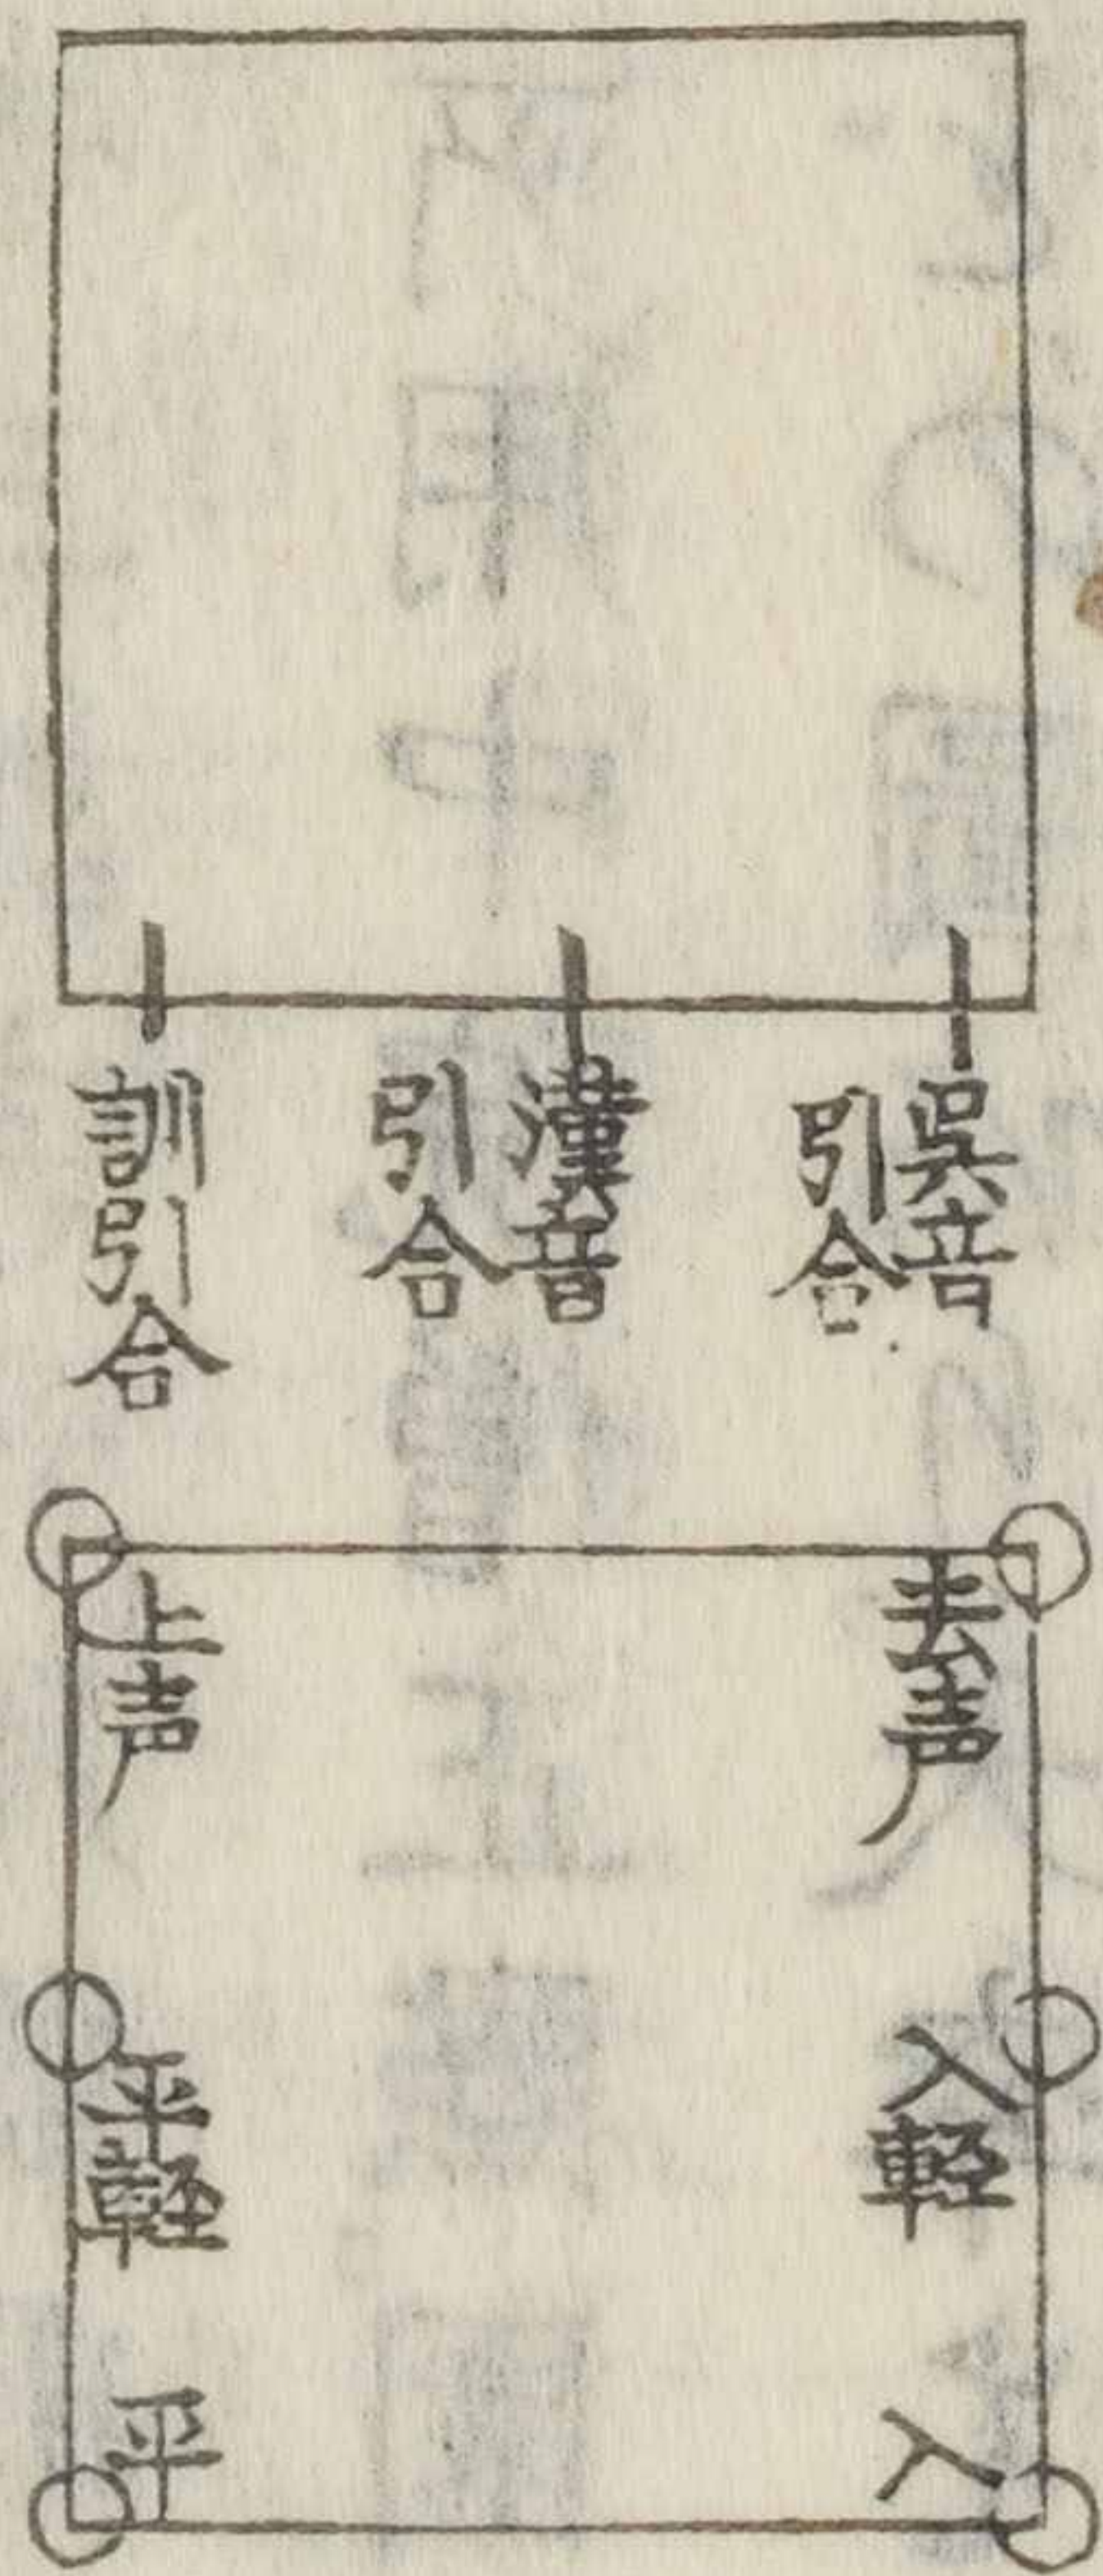 呉音
引合
漢音
引合
訓引合
去声
入軽
入
上声
平軽
平